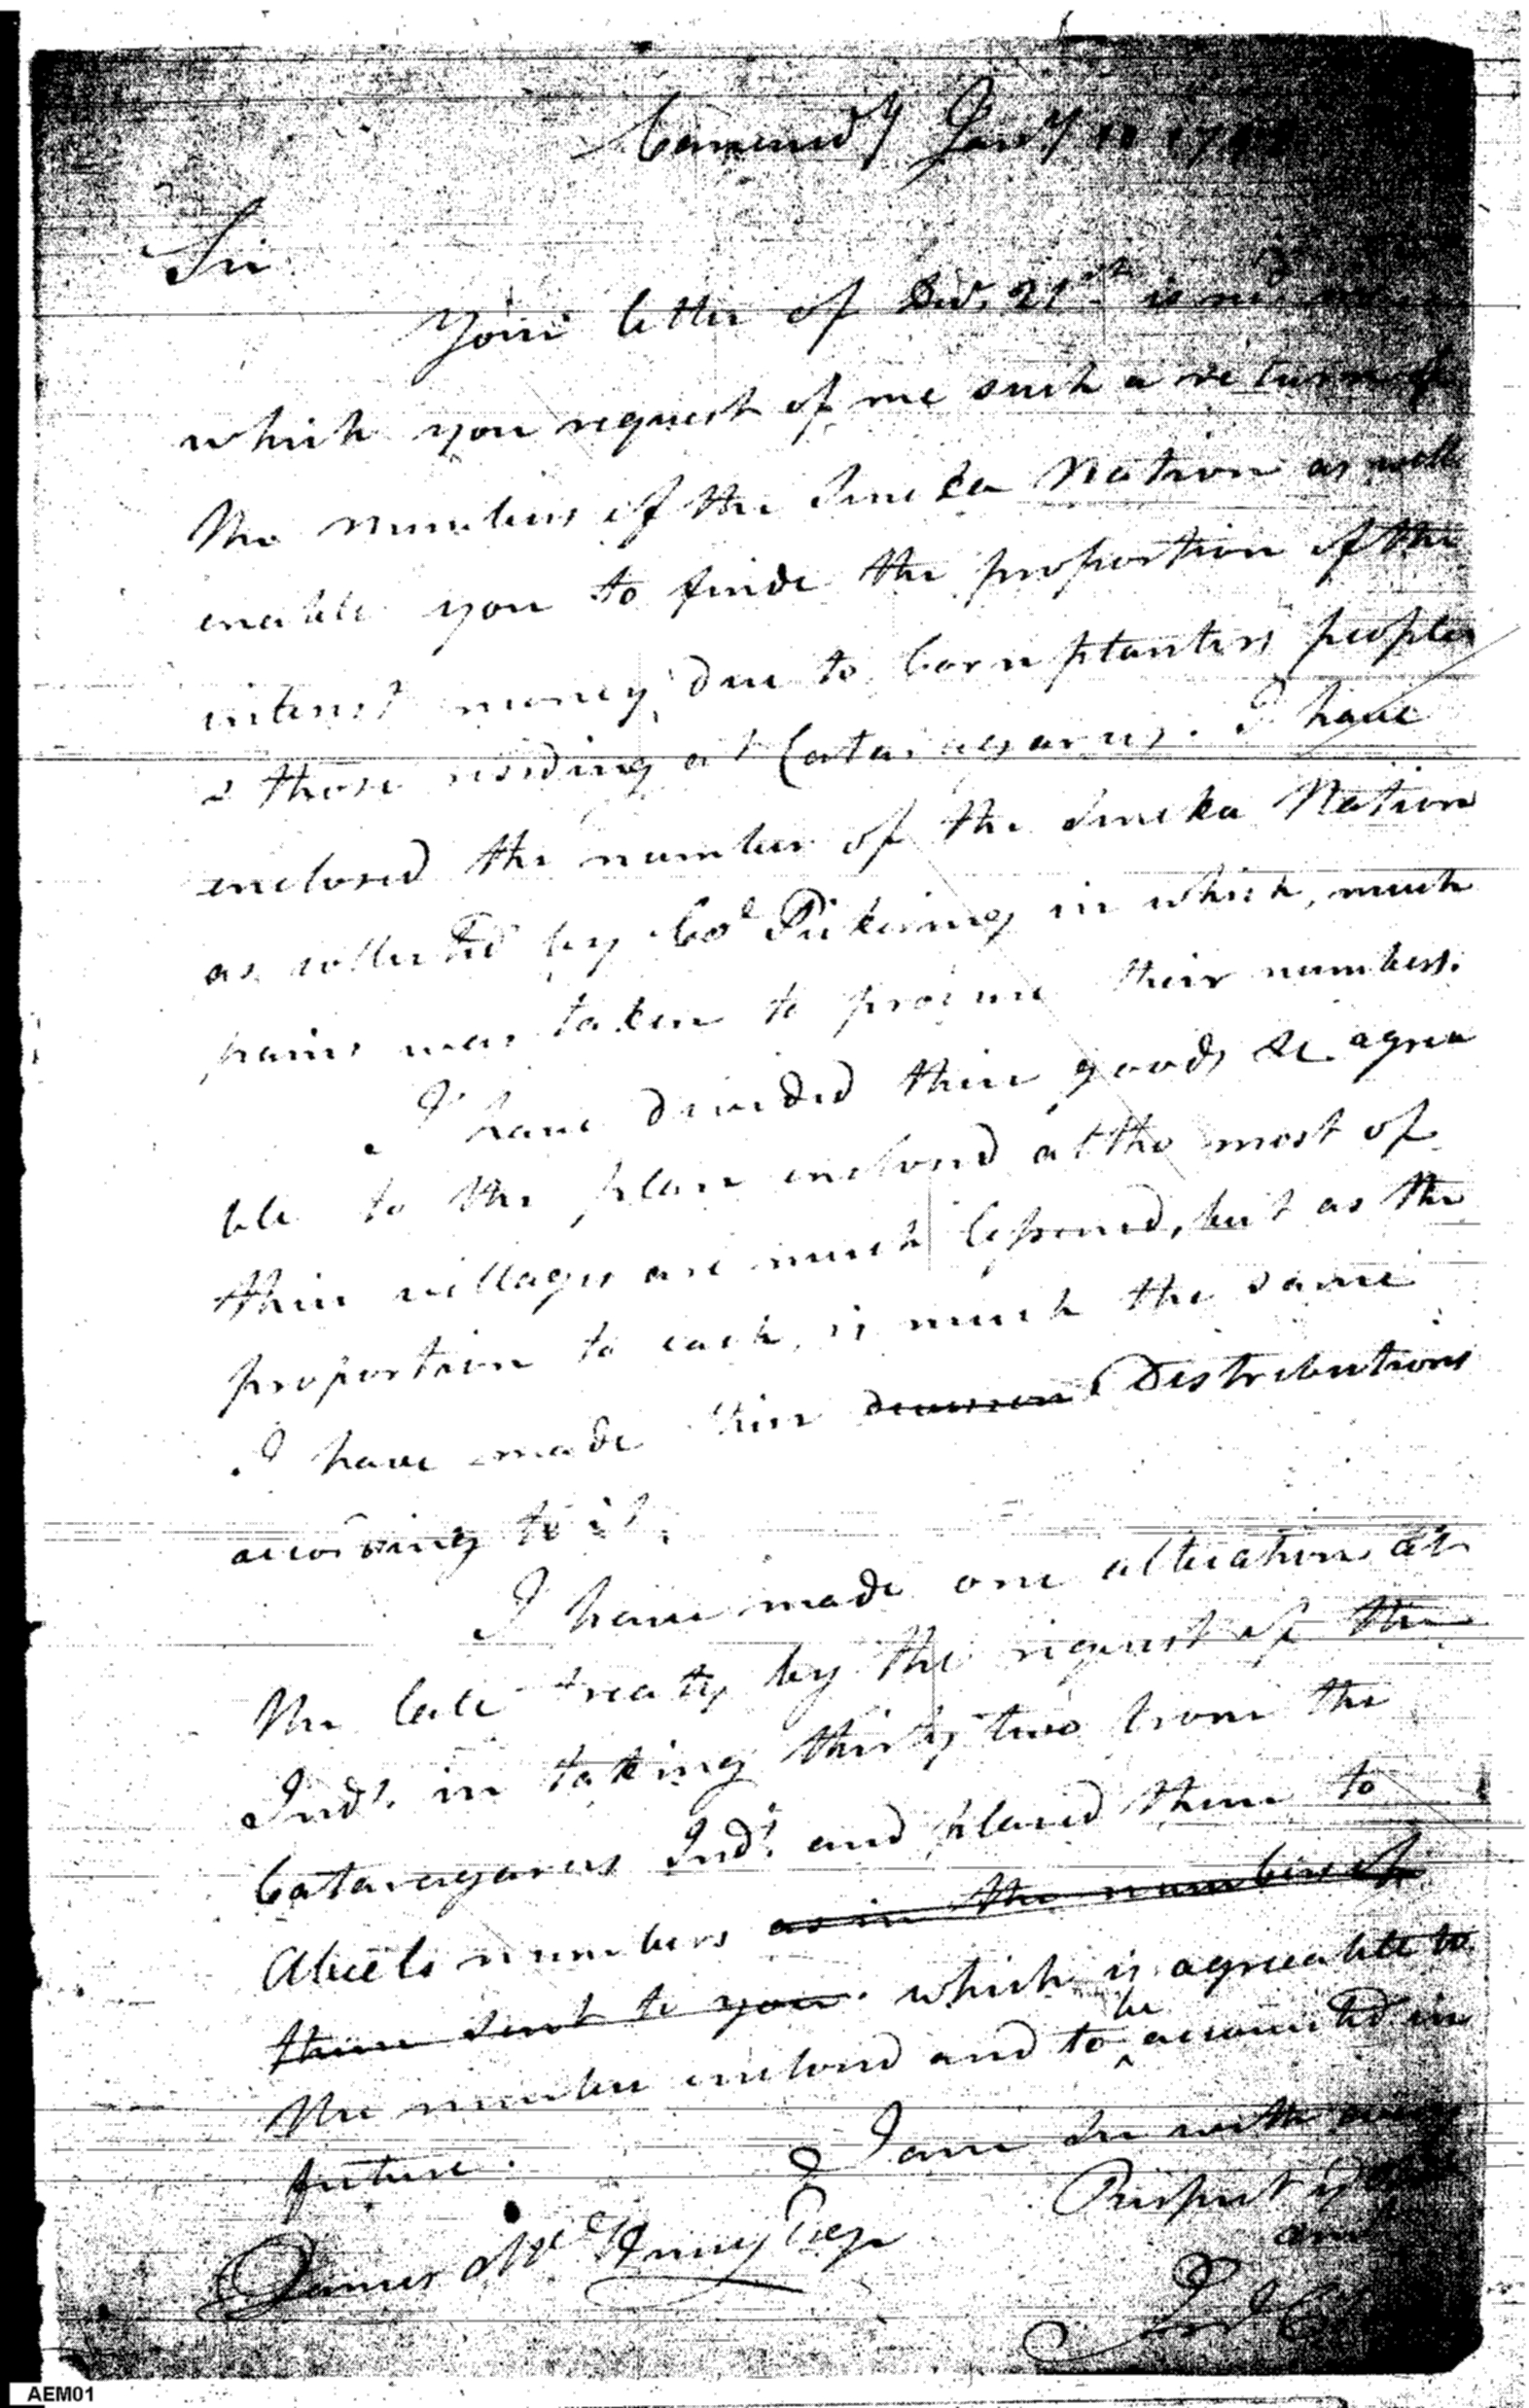 Canand^y Jan^y 11 179
Sir
Your letter of Dec^r 21^st is rec^d
which you request of me such a return of
the numbers of the Seneka Nation as will
enable you to finde the proportion of the
interest money due to Cornplanters people
& those residing at Cataragarus. I have
enclosed the number of the Seneka Nation
as collected by Co^l Pickering in which, much
pains was taken to procure their numbers.
I have divided their goods &c agrea
ble to the plan enclosed altho most of
their villages are much lessened, but as the
proportion to each, is much the same
I have made their division Distributions
according to it.
I have made one alteration at
the late treaty by the request of the
Ind^s. in taking thirty two from the
Cataragarus Ind^s and placed them to
Abeels numbers as in the numbers of
them sent to you. which is agreeable to
the number enclosed and to be accounted in
future.
I am Sir with every
Respect
and
James M^cHenry Esqr
AEM01